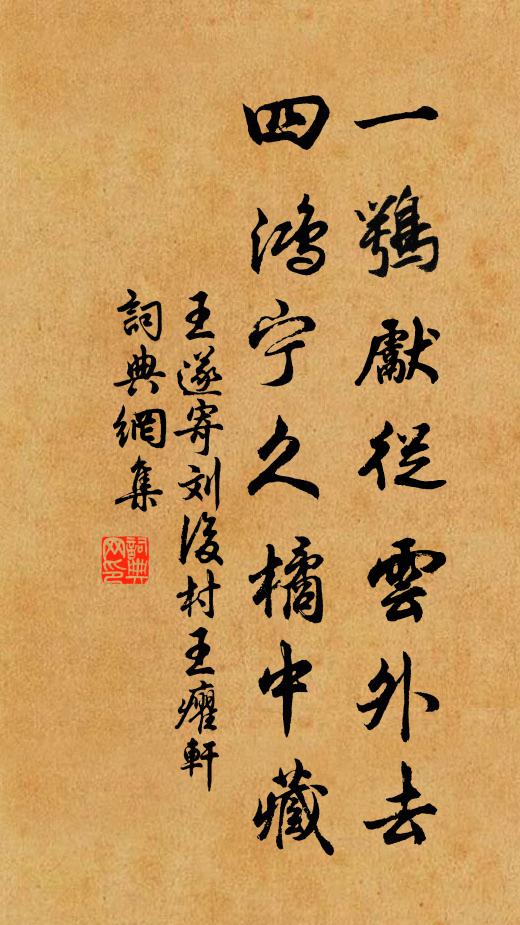 一鶚獻從雲外去
四鸿宁久橘中藏
王遂寄刘後村王癯軒
詞典網集
詞典网印